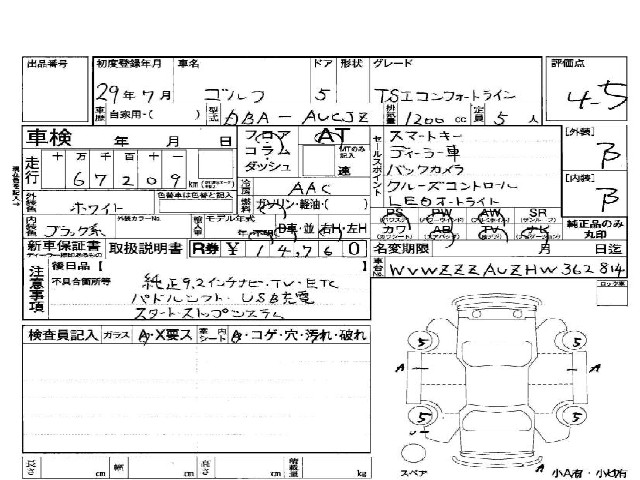 出品番号 初度登録年月 車名 ドア 形状 グレード 評価点
29年7月 ゴルフ 5 TSIコンフォートライン 4-5
車歴 自家用・( ) 型式 ABA-AUCJZ 排気量 1200cc 定員 5人
車検 年 月 日 フロア AT
コラム MTのみ記入
ダッシュ 速
セールスポイント スマートキー
ディーラー車
バックカメラ
クルーズコントロール
LEDオートライト
[外装] B
[内装] B
走行 十 万 千 百 十 一
67209 km
冷房 AAC
外装色 ホワイト 色替車は色替と記入 燃料 ガソリン・軽油・( )
内装色 ブラック系 外装カラーNo. 輸入車 モデル年式 年 D車・並 右H・左H
PS PW AW SR
カワ AB TV ナビ
純正品のみ丸印
新車保証書 取扱説明書 R券 ¥14,760 名変期限 月 日迄
車台No. WVWZZZAUZHW362814
注意事項 後日品【 】
不具合箇所等 純正9.2インチナビ・TV・ETC
パドルシフト・USB充電
スタートストップシステム
ロック車
検査員記入 ガラス A・X要ス 室内シート A・コゲ・穴・汚れ・破れ
5 5
A A
5 5
スペア A 小A有・小U有
長さ cm 幅 cm 高さ cm 積載量 kg